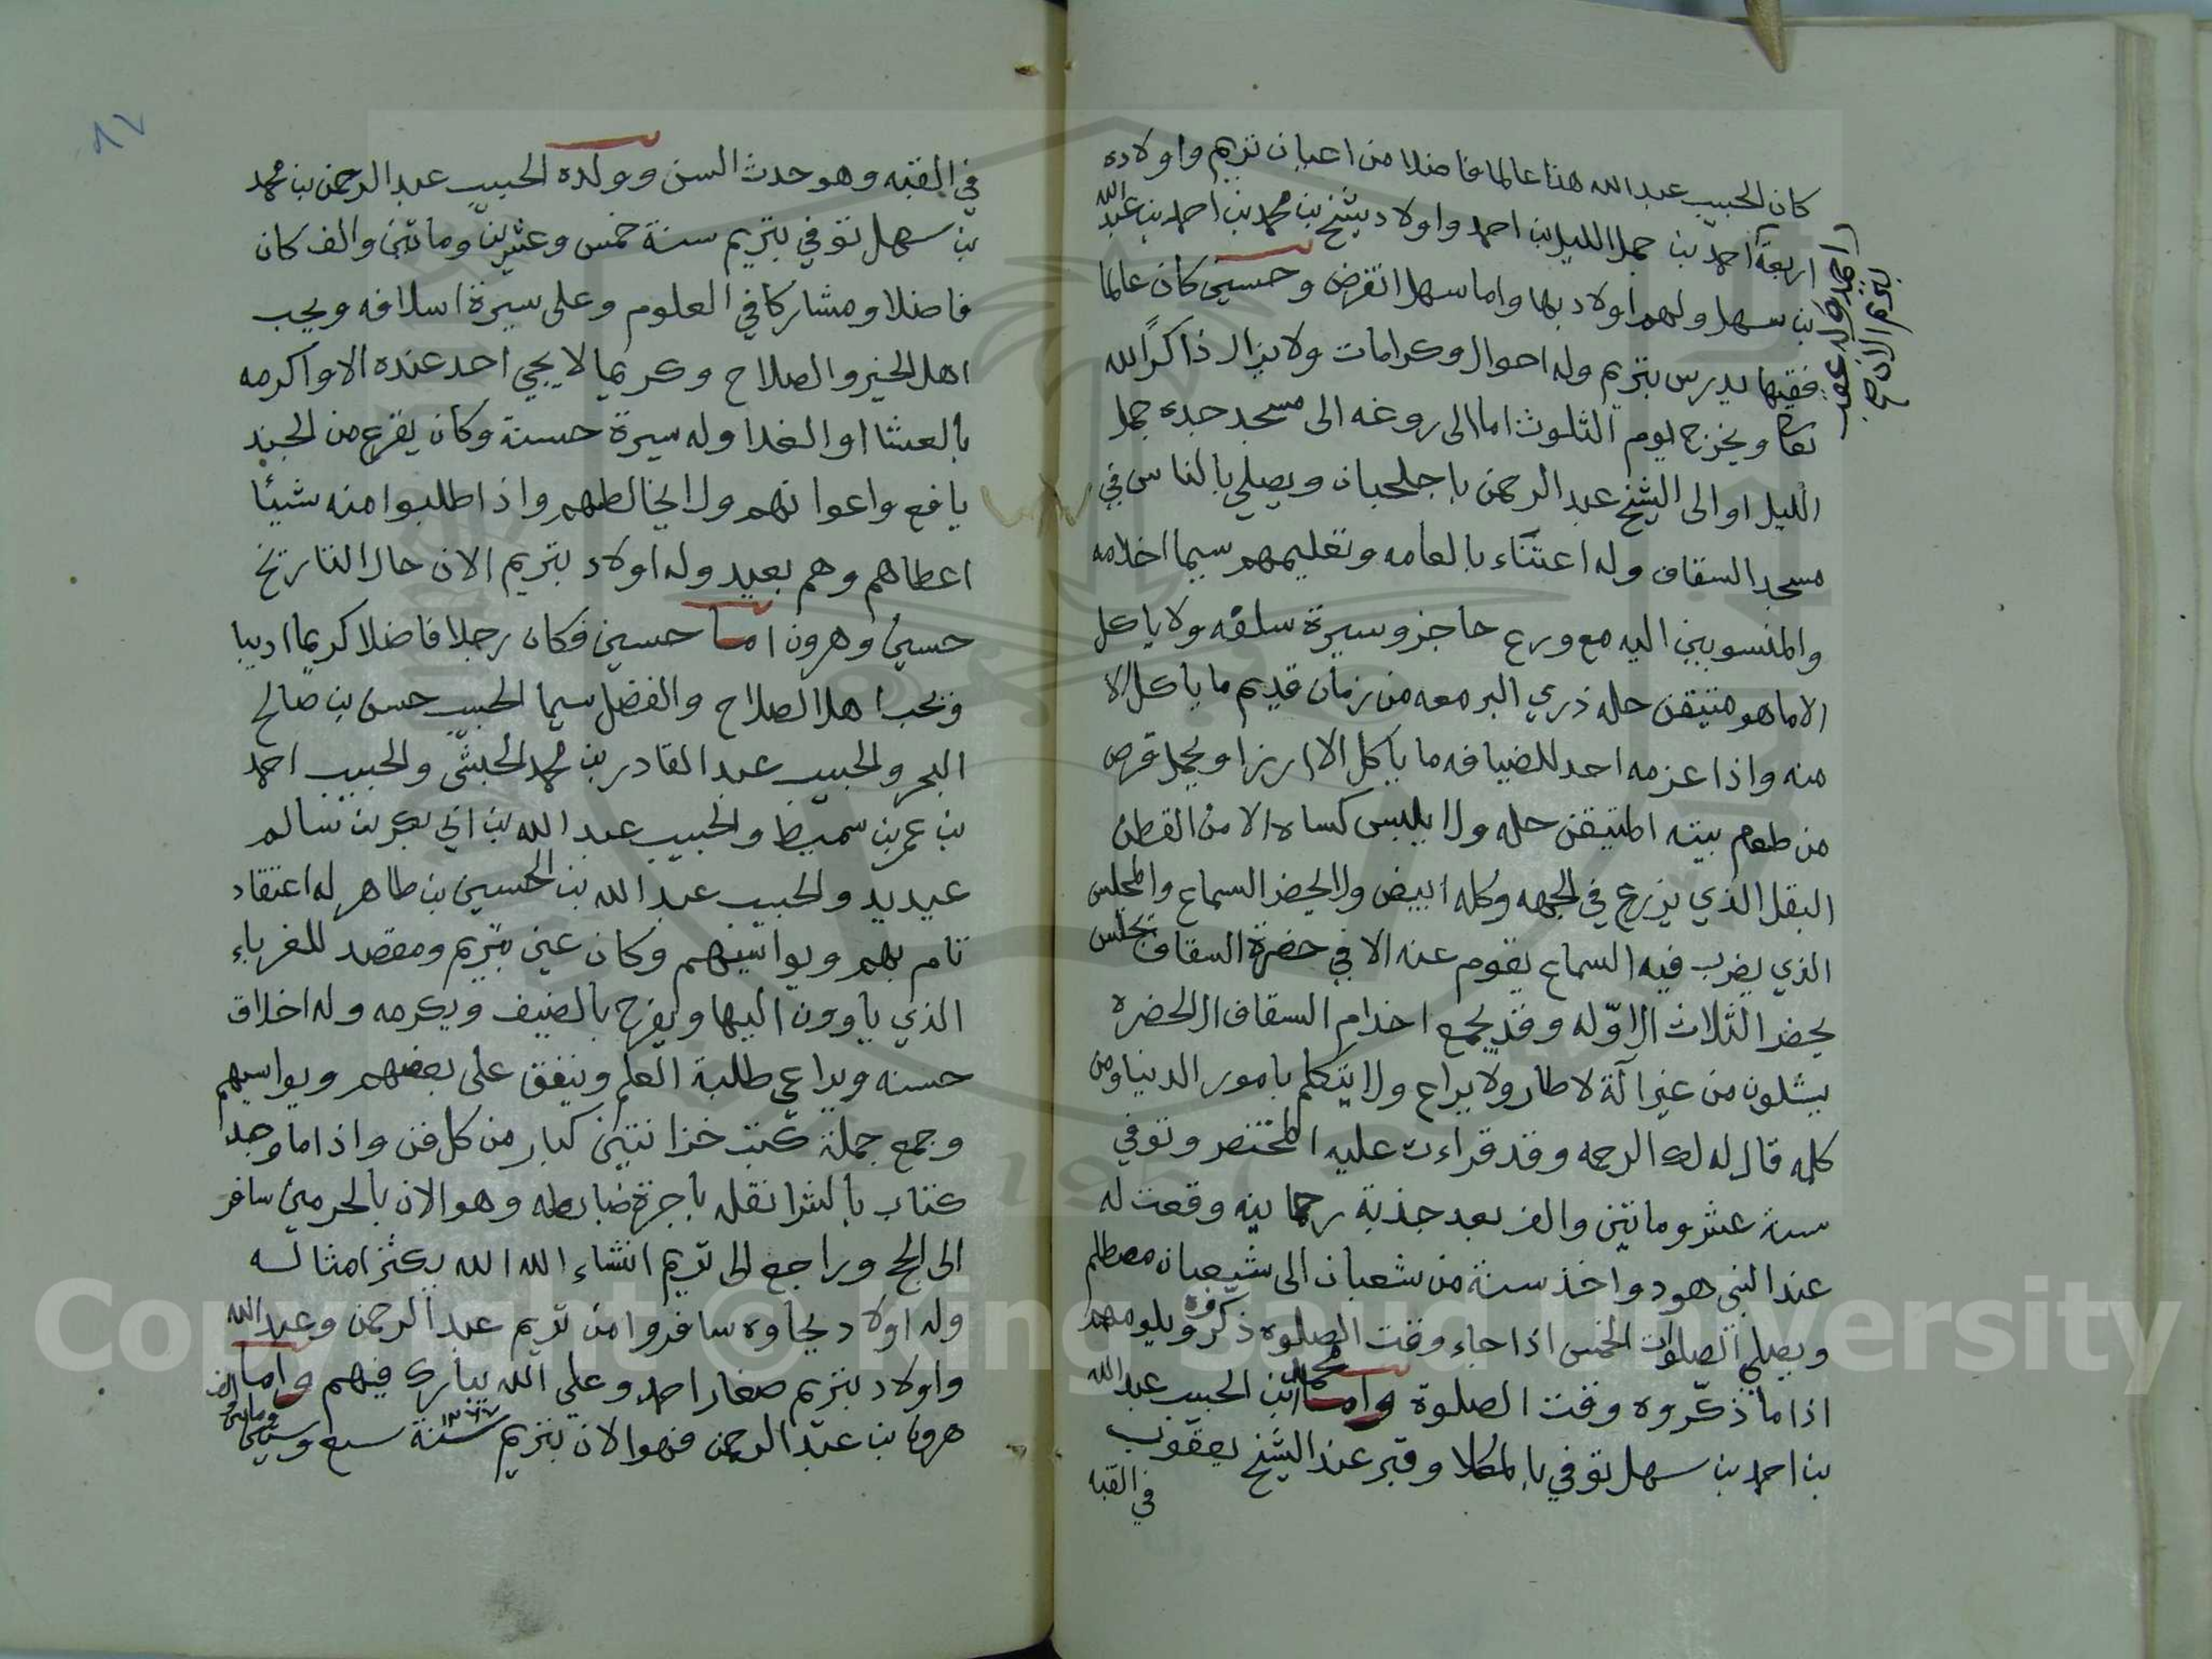 كان الحبيب عبد الله هذا عالما فاضلا من اعيان تريم واولاده
اربعة احمد بن جمل الليل بن احمد واولاد شيخ بن محمد بن احمد بن عبد الله
بن سهل ولهم اولاد بها واما سهل انقرض وحسين كان عالما
فقيها يدرس بتريم وله احوال وكرامات ولا يزال ذاكرا لله
ويخرج يوم الثلوث اما الى روغه الى مسجد جده جمل
الليل او الى الشيخ عبد الرحمن باجلحبان ويصلي بالناس في
مسجد السقاف وله اعتناء بالعامه وتعليمهم سيما اخلامه
والمنسوبين اليه مع ورع حاجز وسيرة سلفه ولا ياكل
الا ما هو متيقن حله ذري البر معه من زمان قديم ما ياكل الا
منه واذا عزمه احد للضيافه ما ياكل الا ارزا ويحمل قرص
من طعم بيته المتيقن حله ولا يلبس كساه الا من القطن
البقل الذي يزرع في الجهه وكله ابيض ولا يحضر السماع والمجلس
الذي يضرب فيه السماع يقوم عنه الا في حضرة السقاف تجلس
يحضر الثلاث الاوله وقد يجمع اخدام السقاف الالحضره
يشلون من غير آلة لا طار ولا يراع ولا يتكلم بامور الدنيا ومن
كلمه قال له لك الرحمه وقد قراءت عليه المختصر وتوفي
سنة عشر وماتين والف بعد جذبة رحمانيه وقعت له
عند النبي هود واخذ سنة من شعبان الى شعبان مصطلم
ويصلي الصلوات الخمس اذا جاء وقت الصلوه ذكروه
اذا ما ذكروه وقت الصلوة واما محمد بن الحبيب عبد الله
بن احمد بن سهل توفي بالمكلا وقبر عند الشيخ يعقوب
في القبه
٨٧
في القبه وهو حدث السن وولده الحبيب عبد الرحمن بن محمد
بن سهل توفي بتريم سنة خمس وعشرين وماتين والف كان
فاضلا ومشاركا في العلوم وعلى سيرة اسلافه ويحب
اهل الخير والصلاح وكريما لا يجي احد عنده الا واكرمه
بالعشا او الغدا وله سيرة حسنة وكان يفزع من الجند
يافع واعوانهم ولا يخالطهم واذا طلبوا منه شيئا
اعطاهم وهم بعيد وله اولاد بتريم الان حال التاريخ
حسين وهرون اما حسين فكان رجلا فاضلا كريما اديبا
ونحب اهل الصلاح والفضل سيما الحبيب حسن بن صالح
البحر والحبيب عبد القادر بن محمد الحبشي والحبيب احمد
بن عمر بن سميط والحبيب عبد الله بن ابي بكر بن سالم
عيديد والحبيب عبد الله بن الحسين بن طاهر له اعتقاد
تام بهم ويواسيهم وكان عين بتريم ومقصد للغرباء
الذي ياوون اليها ويفرح بالضيف ويكرمه وله اخلاق
حسنه ويراعي طلبة العلم وينفق على بعضهم ويواسيهم
وجمع جملة كتب خزانتين كبار من كل فن واذا ما وجد
كتاب بالشرا نقله باجرة ضابطه وهو الان بالحرمين سافر
الى الحج وراجع الى تريم انشاء الله الله يكثر امثاله
وله اولاد بجاوه سافروا من تريم عبد الرحمن وعبد الله
واولاد بتريم صغار احمد وعلي الله يبارك فيهم واما
هرون بن عبد الرحمن فهو الان بتريم سنة سبع وستين وماتين والف
Copyright © King Saud University
1957